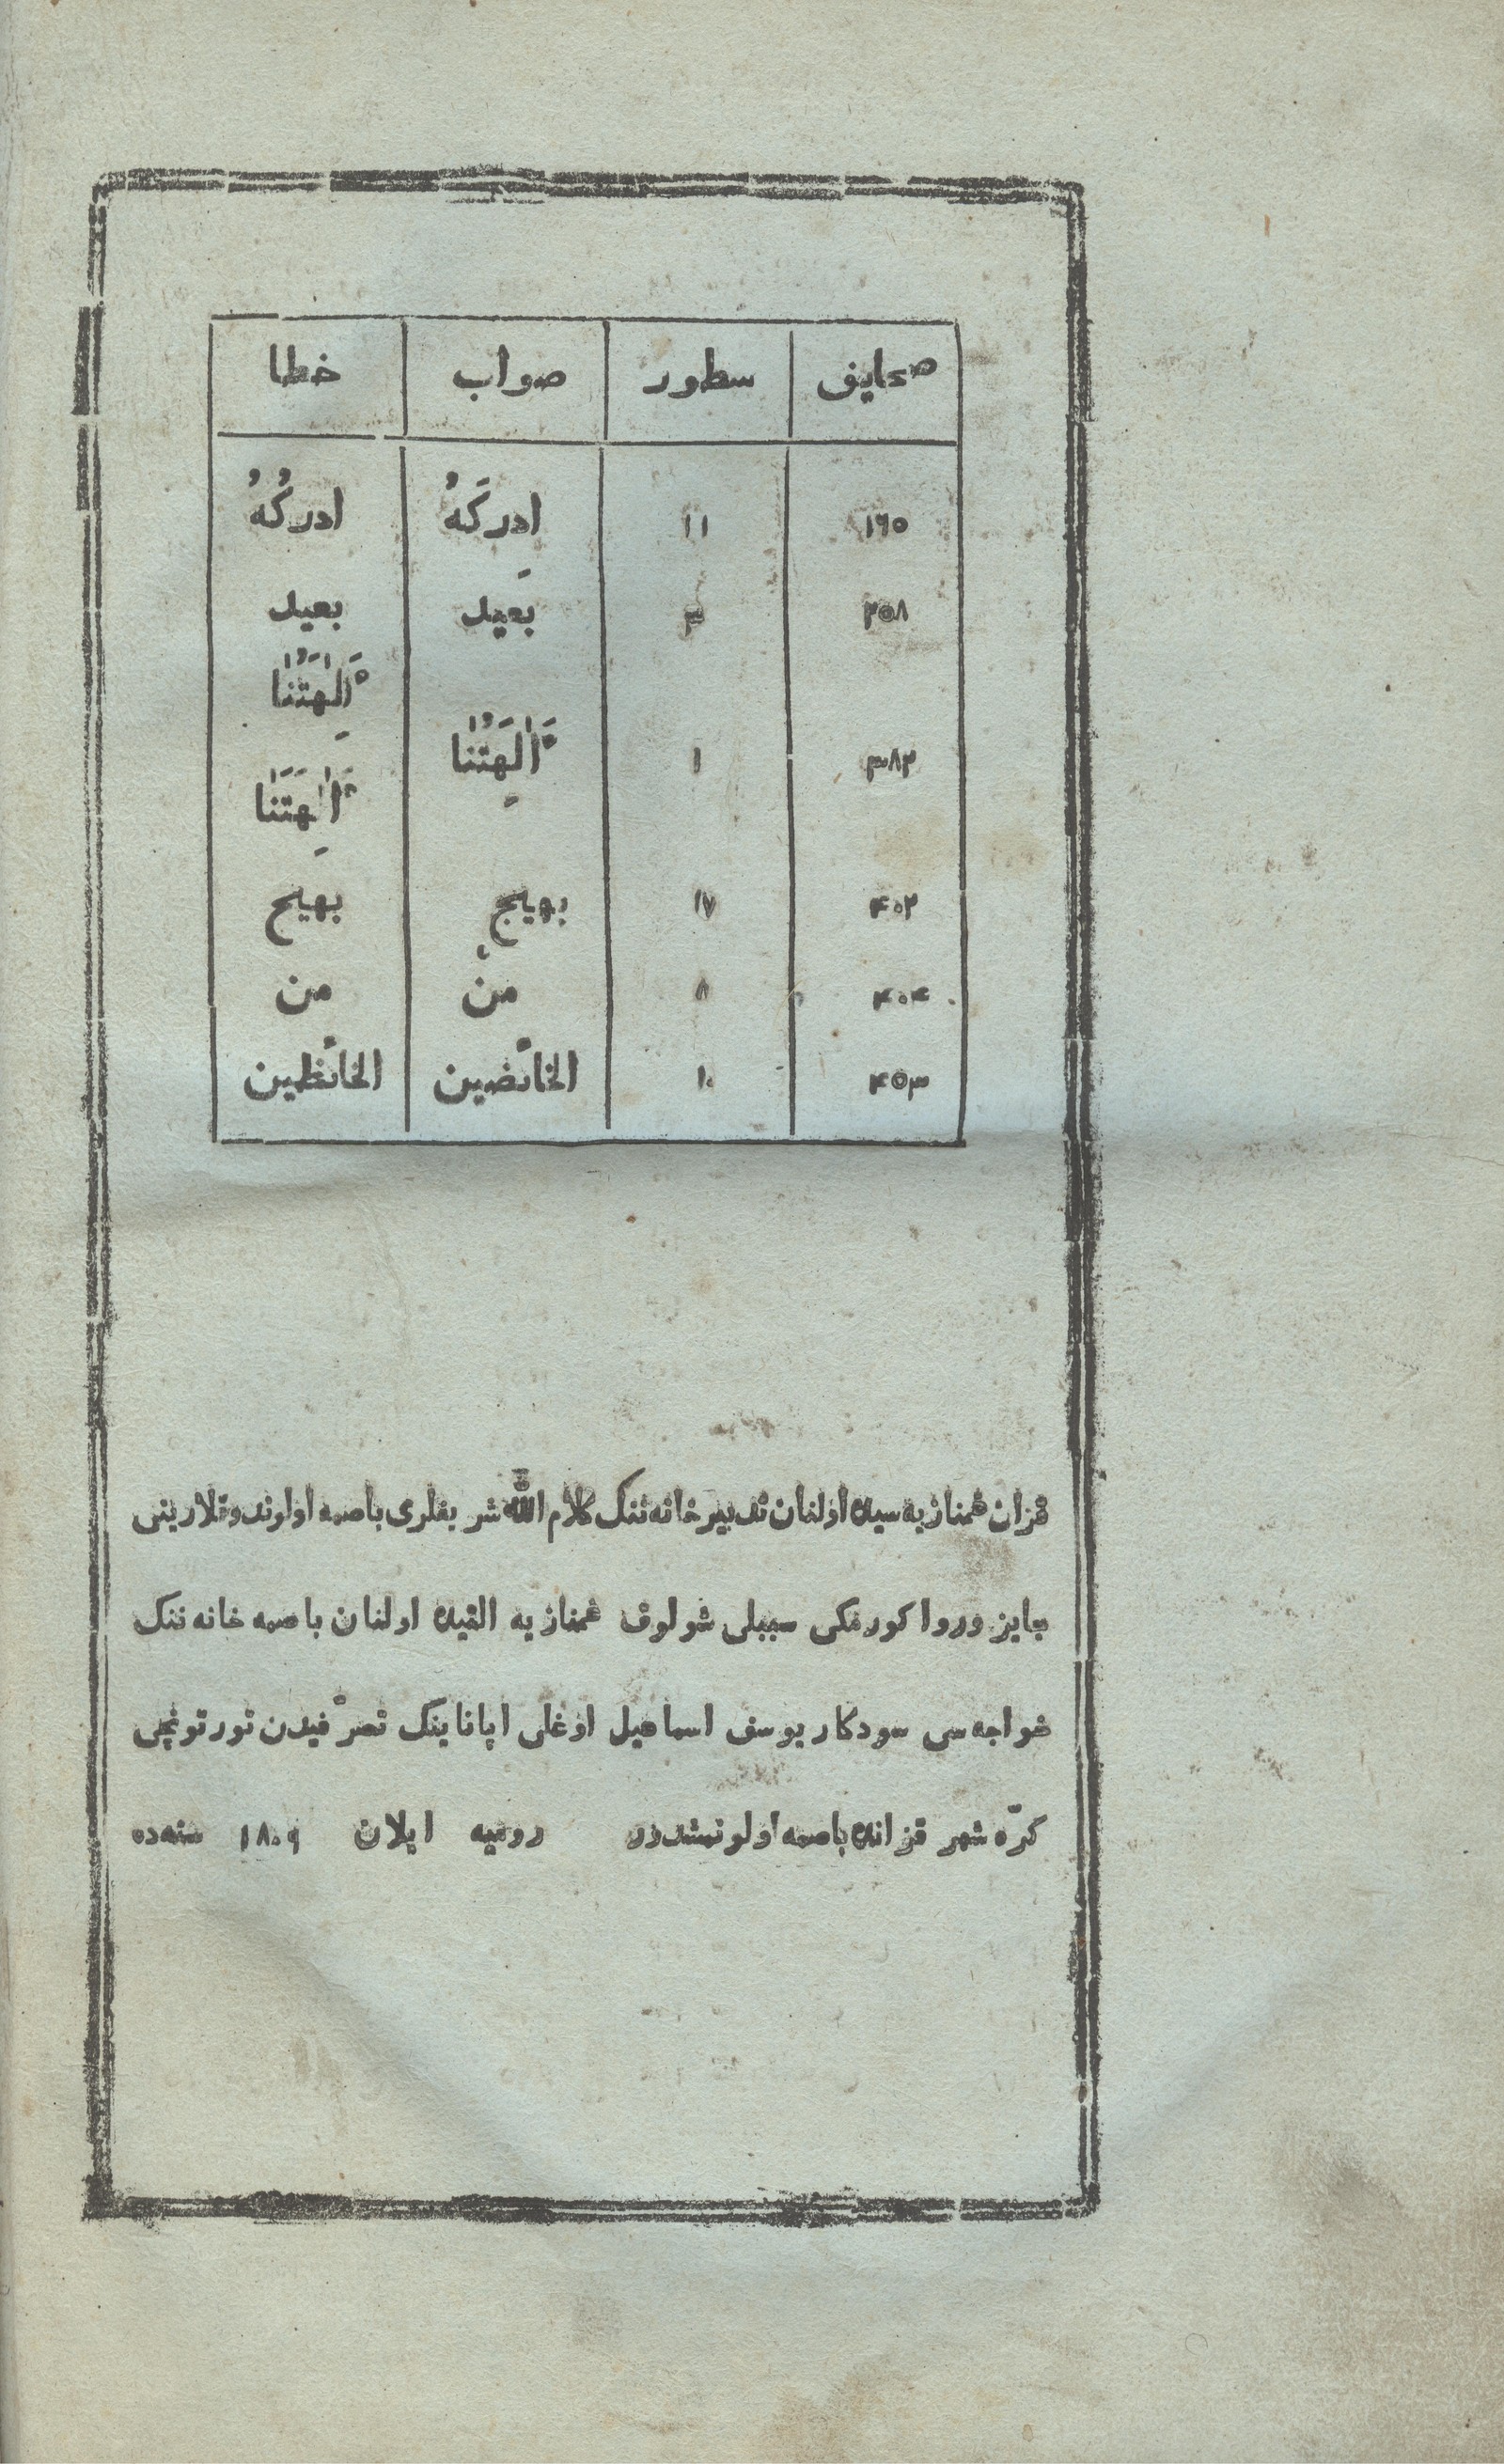 صحايف سطور صواب خطا
١٦٥ ١١ ادركَهُ ادركُهُ
٢٥٨ ٣ بَعِيد بعيد
ءَاٰلِهَتُنٰا
٣٨٢ ١ ءَاٰلِهَتُنٰا
ءَاٰلِهَتَنٰا
٤٠٢ ١٧ بهيج بهيح
٤٠٤ ٨ منْ من
٤٥٣ ١٠ الخائضين الخائظين
قزان غمنازيه سيده اولنان تدبيرخانه ننك كلام الله شريفلرى باصمه اولوندوقلارينى
جايز وروا كورمكى سببلى شولوق غمنازيه القيده اولنان باصمه خانه ننك
خواجه سى سودكار يوسف اسماعيل اوغلى اپاناينك تصرّفيدن تورتونچى
كرّه شهر قزانده باصمه اولونمشدور روسيه ايلان ١٨٠٩ سنه ده